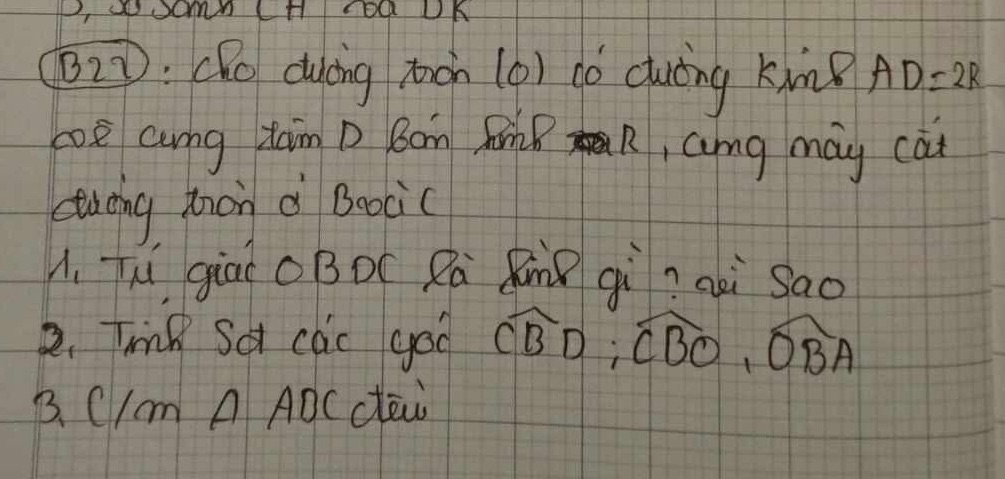 B22: Cho đường tròn (O) có đường kính AD = 2R
vẽ cung tâm D bán kính R, cung này cắt
đường tròn ở B và C
1. Tứ giác OBDC là hình gì? vì sao
2. Tính số các góc CBD; CBO, OBA
3. C/m Δ ABC đều